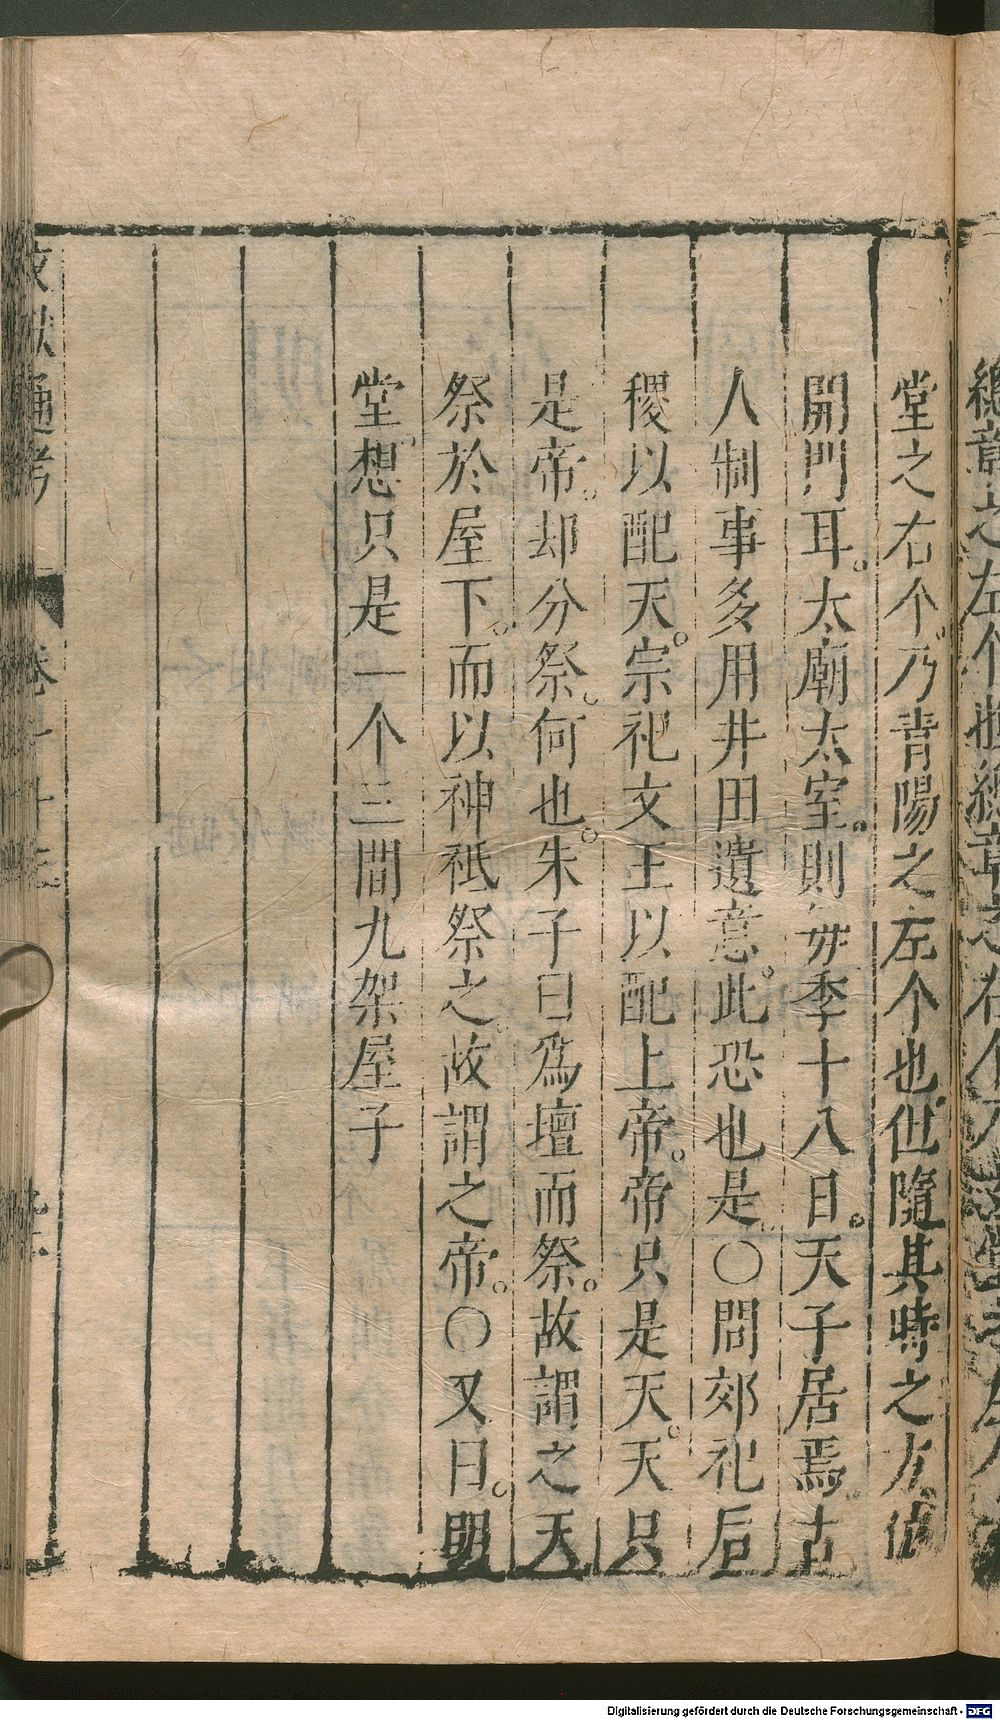 堂之右个。乃青陽之左个也。但隨其時之方位
開門耳。太廟太室。則每季十八日。天子居焉。古
人制事多用井田遺意。此恐也是。○問郊祀后
稷以配天。宗祀文王以配上帝。帝只是天。天只
是帝。却分祭。何也。朱子曰爲壇而祭。故謂之天
祭於屋下。而以神祗祭之。故謂之帝。○又曰。明
堂。想只是一个三間九架屋子
文獻通考
Digitalisierung gefördert durch die Deutsche Forschungsgemeinschaft - DFG